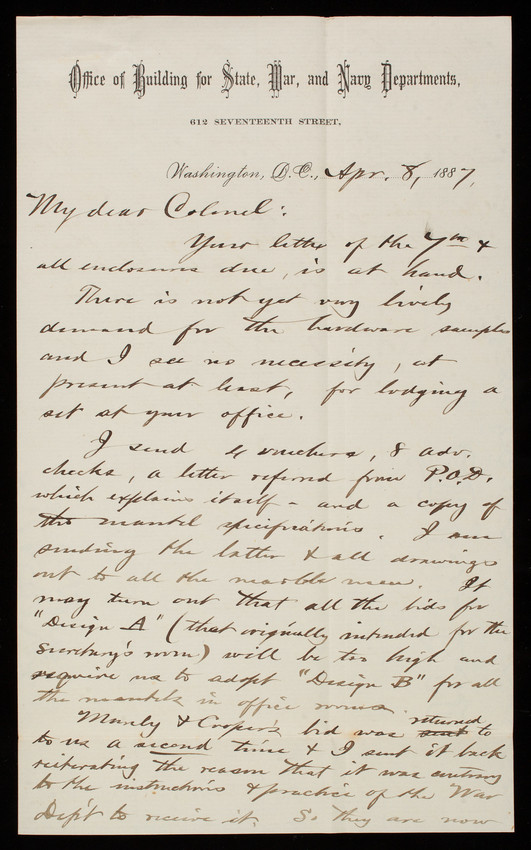 Office of Building for State, War, and Navy Departments,
612 SEVENTEENTH STREET,
Washington, D.C., Apr. 8, 1887,
My dear Colonel:
Your letter of the 7th &
all enclosures due, is at hand.
There is not yet very lively
demand for the hardware samples
and I see no necessity, at
present at least, for lodging a
set at your office.
I send 4 vouchers, 8 adv.
checks, a letter referred from P.O.D.
which explains itself - and a copy of
the mantel specifications. I am
sending the latter & all drawings
out to all the marble men. It
may turn out that all the bids for
"Design A" (that originally intended for the
Secretary's room) will be too high and
require us to adopt "Design B" for all
the mantels in office rooms.
Manly & Cooper's bid was sent returned to
to us a second time & I sent it back
reiterating the reason that it was contrary
to the instructions & practice of the War
Dep't to receive it. So they are now